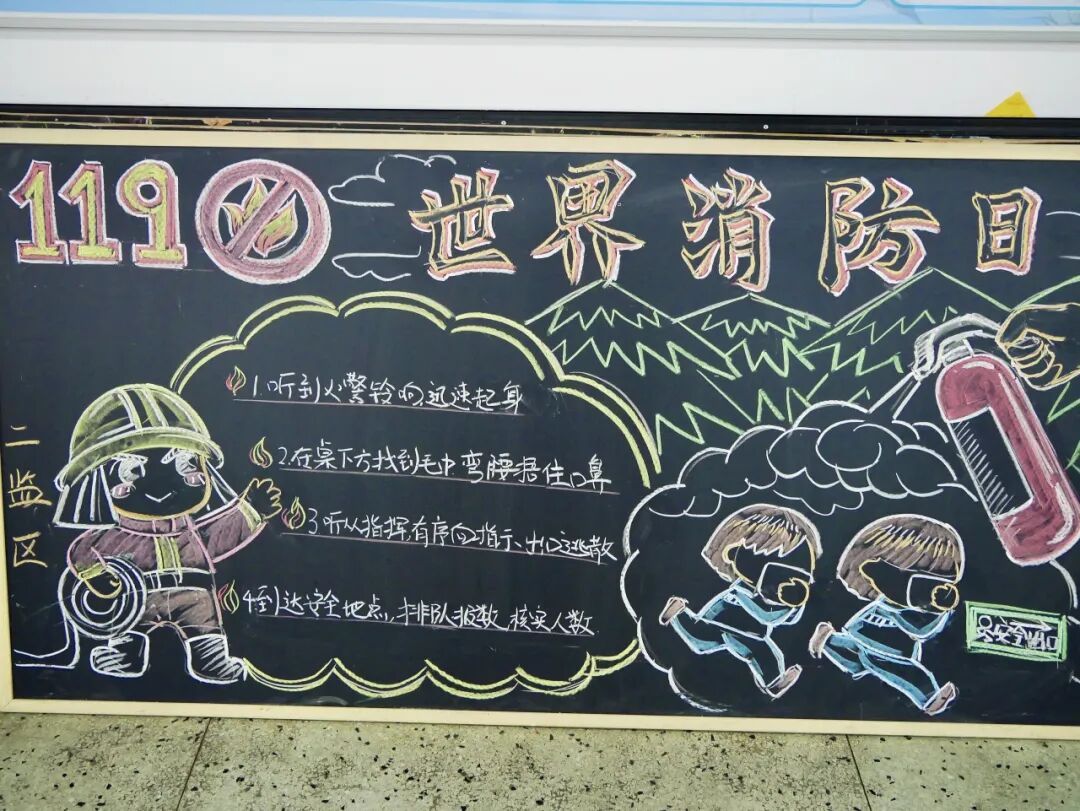 119 世界消防日
1.听到火警铃响迅速起身
2.在桌下方找到毛巾弯腰捂住口鼻
3.听从指挥,有序向指示出口逃散
4.到达安全地点,排队报数,核实人数
二监区
安全出口